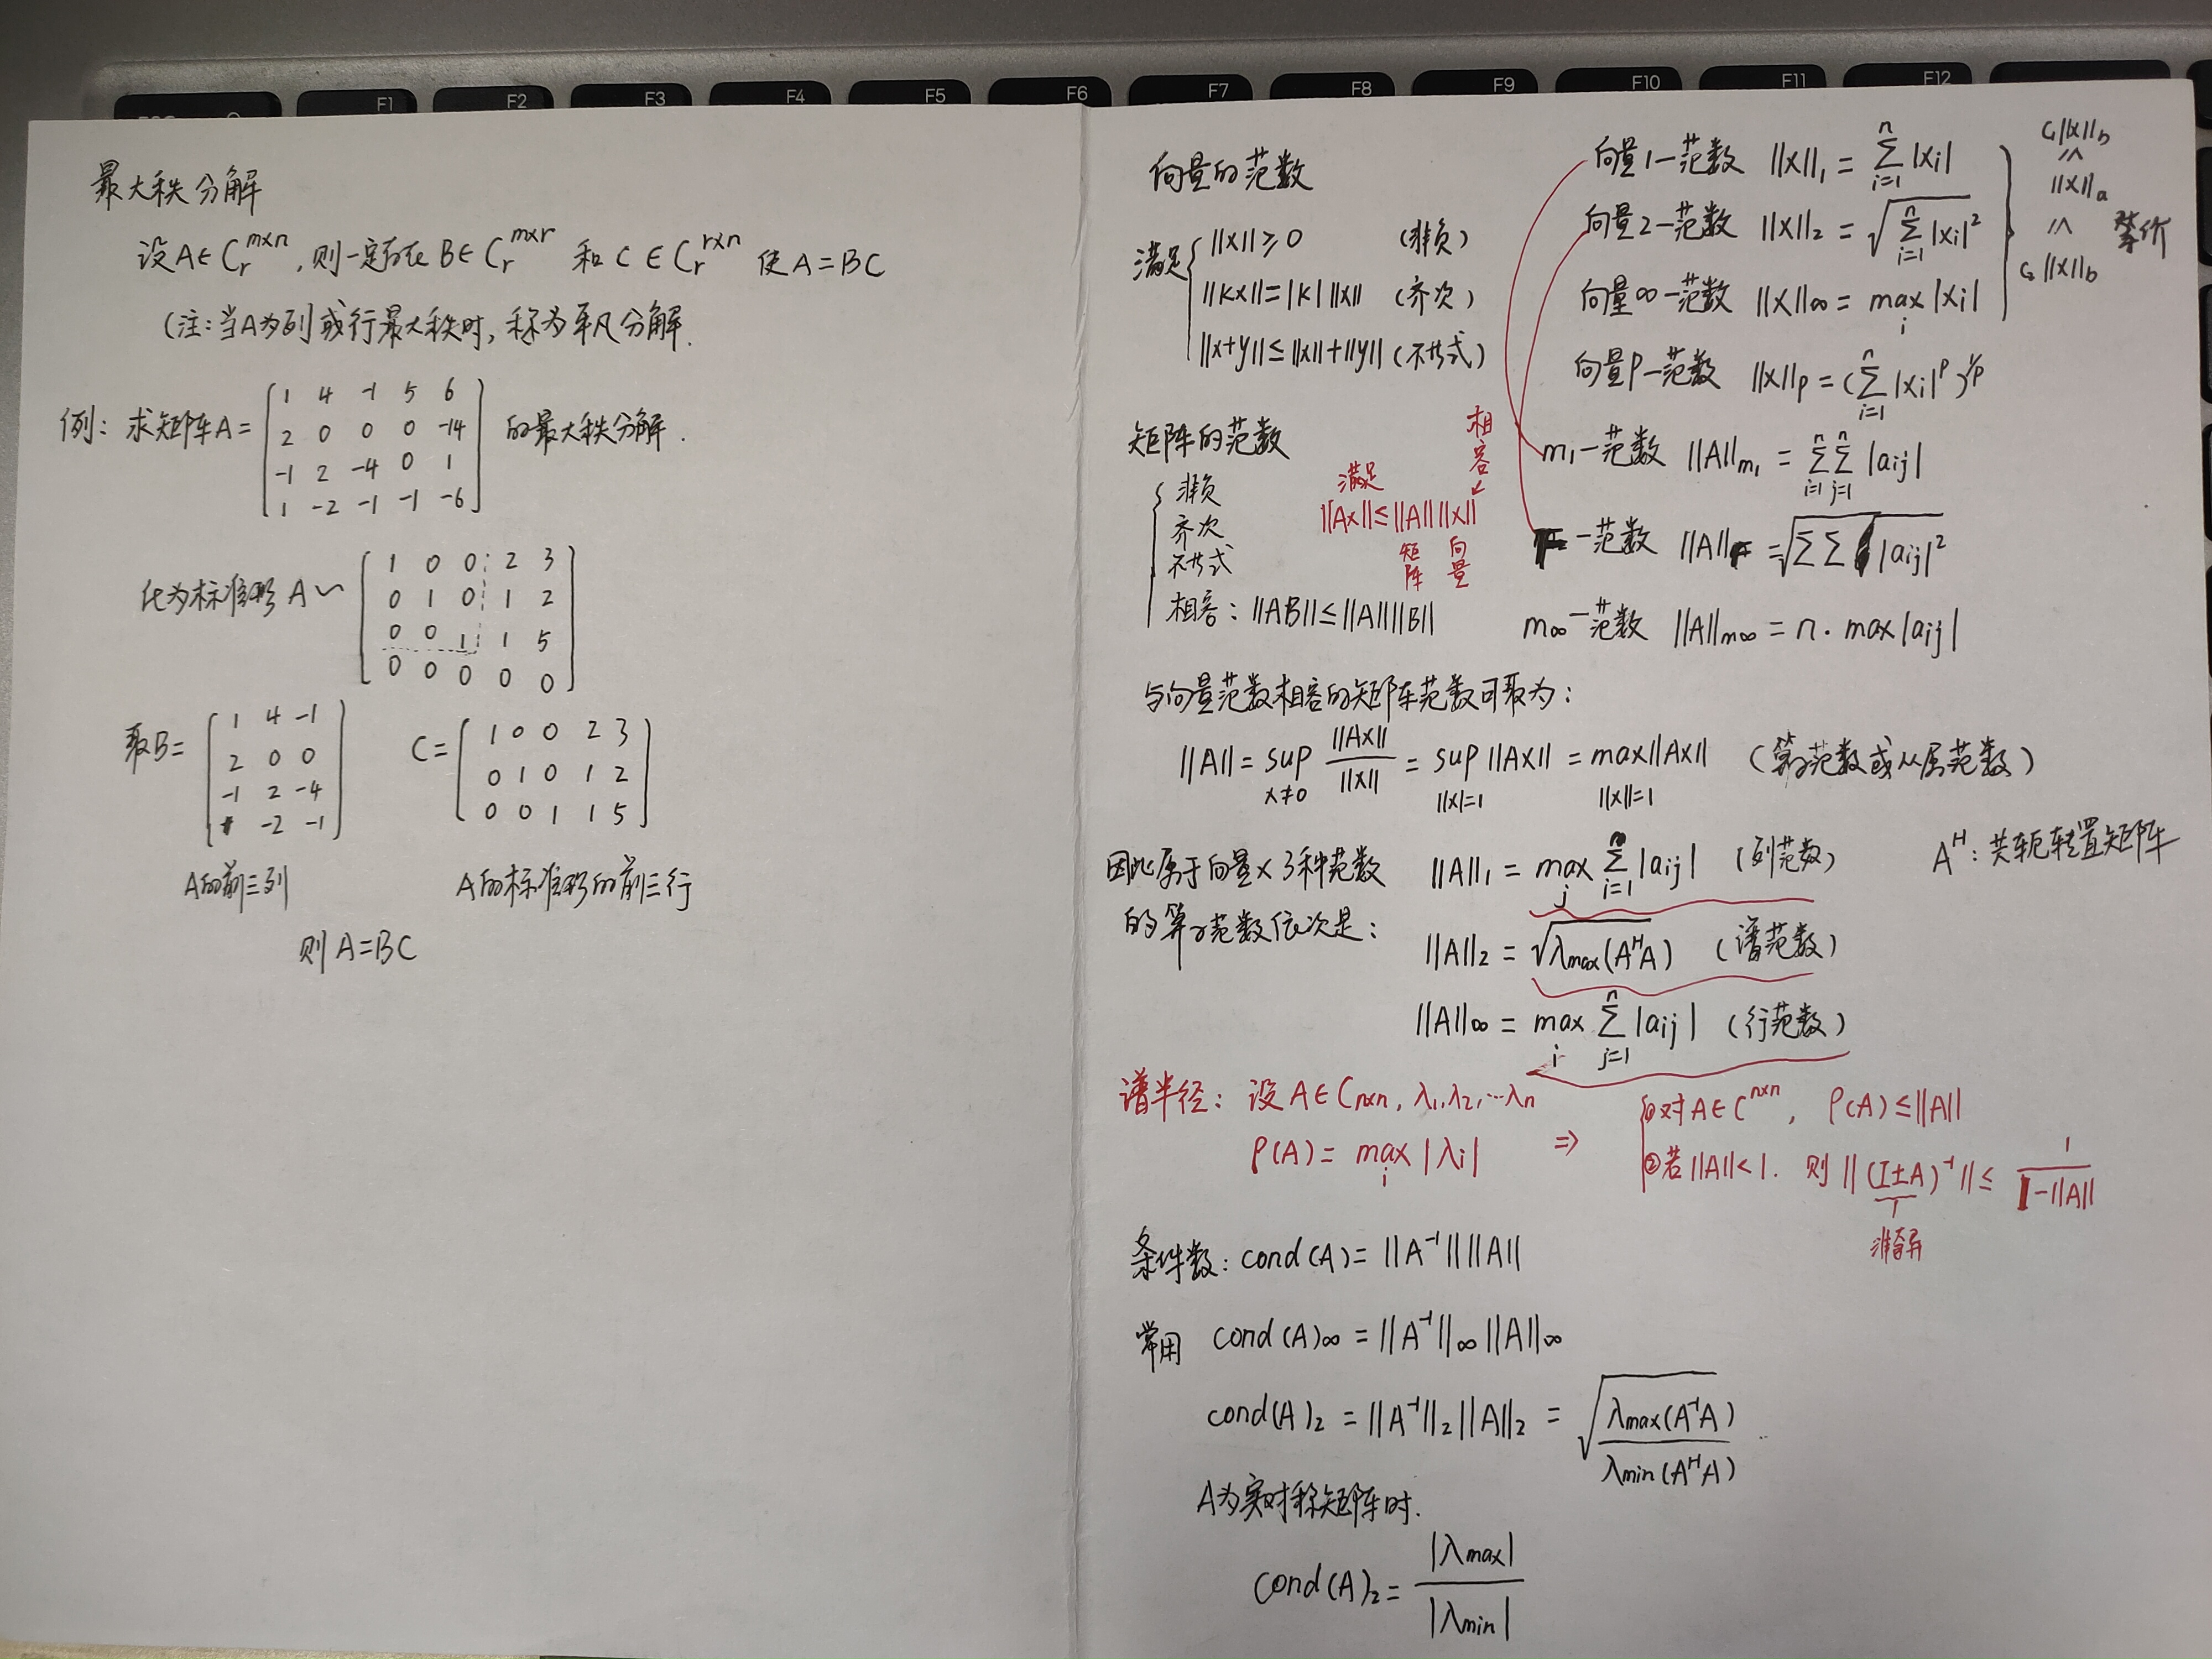 F1 F2 F3 F4 F5 F6 F7 F8 F9 F10 F11 F12
最大秩分解
设A∈C_r^{m×n}, 则一定存在 B∈C_r^{m×r} 和 C∈C_r^{r×n} 使 A=BC
(注:当A为列或行最大秩时, 称为平凡分解.
例: 求矩阵A= [1 4 -1 5 6; 2 0 0 0 -14; -1 2 -4 0 1; 1 -2 -1 -1 -6] 的最大秩分解.
化为标准形 A~ [1 0 0 2 3; 0 1 0 1 2; 0 0 1 1 5; 0 0 0 0 0]
取B= [1 4 -1; 2 0 0; -1 2 -4; 1 -2 -1] C= [1 0 0 2 3; 0 1 0 1 2; 0 0 1 1 5]
A的前三列 A的标准形的前三行
则 A=BC
向量的范数
满足 { ||x||≥0 (非负)
||kx||=|k| ||x|| (齐次)
||x+y||≤||x||+||y|| (不等式)
向量1-范数 ||x||₁ = Σ_{i=1}^{n} |xi|
向量2-范数 ||x||₂ = √(Σ_{i=1}^{n} |xi|²)
向量∞-范数 ||x||∞ = max_i |xi|
C₁||x||b ≤ ||x||a ≤ C₂||x||b 等价
向量p-范数 ||x||p = (Σ_{i=1}^{n} |xi|^p)^{1/p}
矩阵的范数
{ 非负
齐次
不等式
相容: ||AB||≤||A|| ||B||
满足
||Ax||≤||A|| ||x||
相容
矩阵 向量
m₁-范数 ||A||m₁ = Σ_{i=1}^{n} Σ_{j=1}^{n} |aij|
F-范数 ||A||F = √(ΣΣ |aij|²)
m∞-范数 ||A||m∞ = n·max|aij|
与向量范数相容的矩阵范数可取为:
||A|| = sup_{x≠0} ||Ax||/||x|| = sup_{||x||=1} ||Ax|| = max_{||x||=1} ||Ax|| (算子范数或从属范数)
因此属于向量x 3种范数
的算子范数依次是:
||A||₁ = max_j Σ_{i=1}^{n} |aij| (列范数)
A^H: 共轭转置矩阵
||A||₂ = √(λmax(A^H A)) (谱范数)
||A||∞ = max_i Σ_{j=1}^{n} |aij| (行范数)
谱半径: 设A∈Cn×n, λ₁,λ₂,…λn
ρ(A) = max_i |λi| ⇒
{ ①对A∈C^{n×n}, ρ(A)≤||A||
②若||A||<1. 则 ||(I±A)^{-1}||≤ 1/(1-||A||)
非奇异
条件数: cond(A)=||A^{-1}|| ||A||
常用 cond(A)∞ = ||A^{-1}||∞ ||A||∞
cond(A)₂ = ||A^{-1}||₂ ||A||₂ = √(λmax(A^H A)/λmin(A^H A))
A为实对称矩阵时.
cond(A)₂ = |λmax|/|λmin|